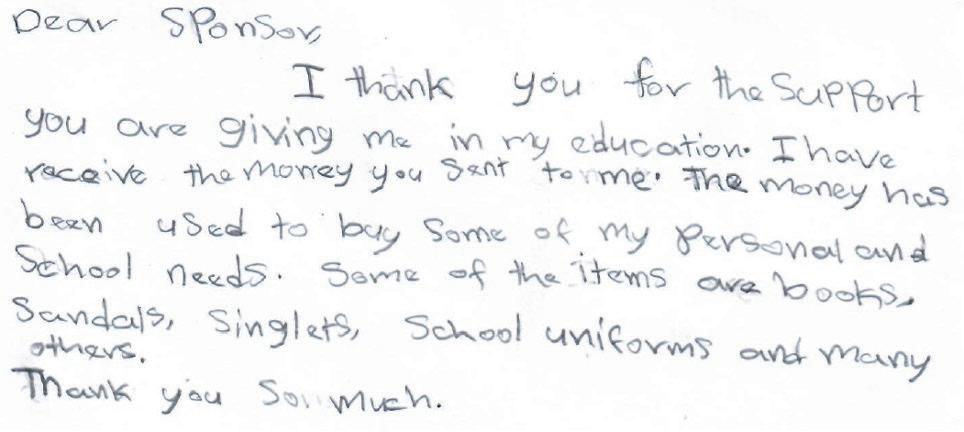 Dear Sponsor,
I thank you for the support
you are giving me in my education. I have
receive the money you sent to me. The money has
been used to buy some of my personal and
School needs. Some of the items are books,
Sandals, Singlets, School uniforms and many
others.
Thank you So much.